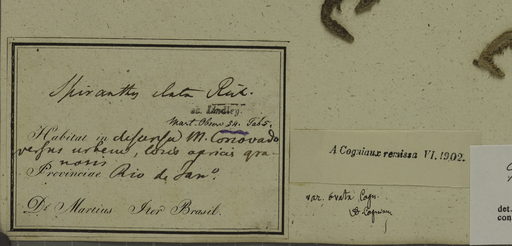 Spiranthes elata Rich.
ex. Lindleg.
Mart. Observ. 54. Tab 5.
Habitat in descensu M. Corcovado
versus urbem, locis apricis gra
nosis
Provinciae Rio de Jan.°
De Martius Iter Brasil.
A Cogniaux revissa VI.1902.
var. ovata Cogn.
Cogniaux
det.
con